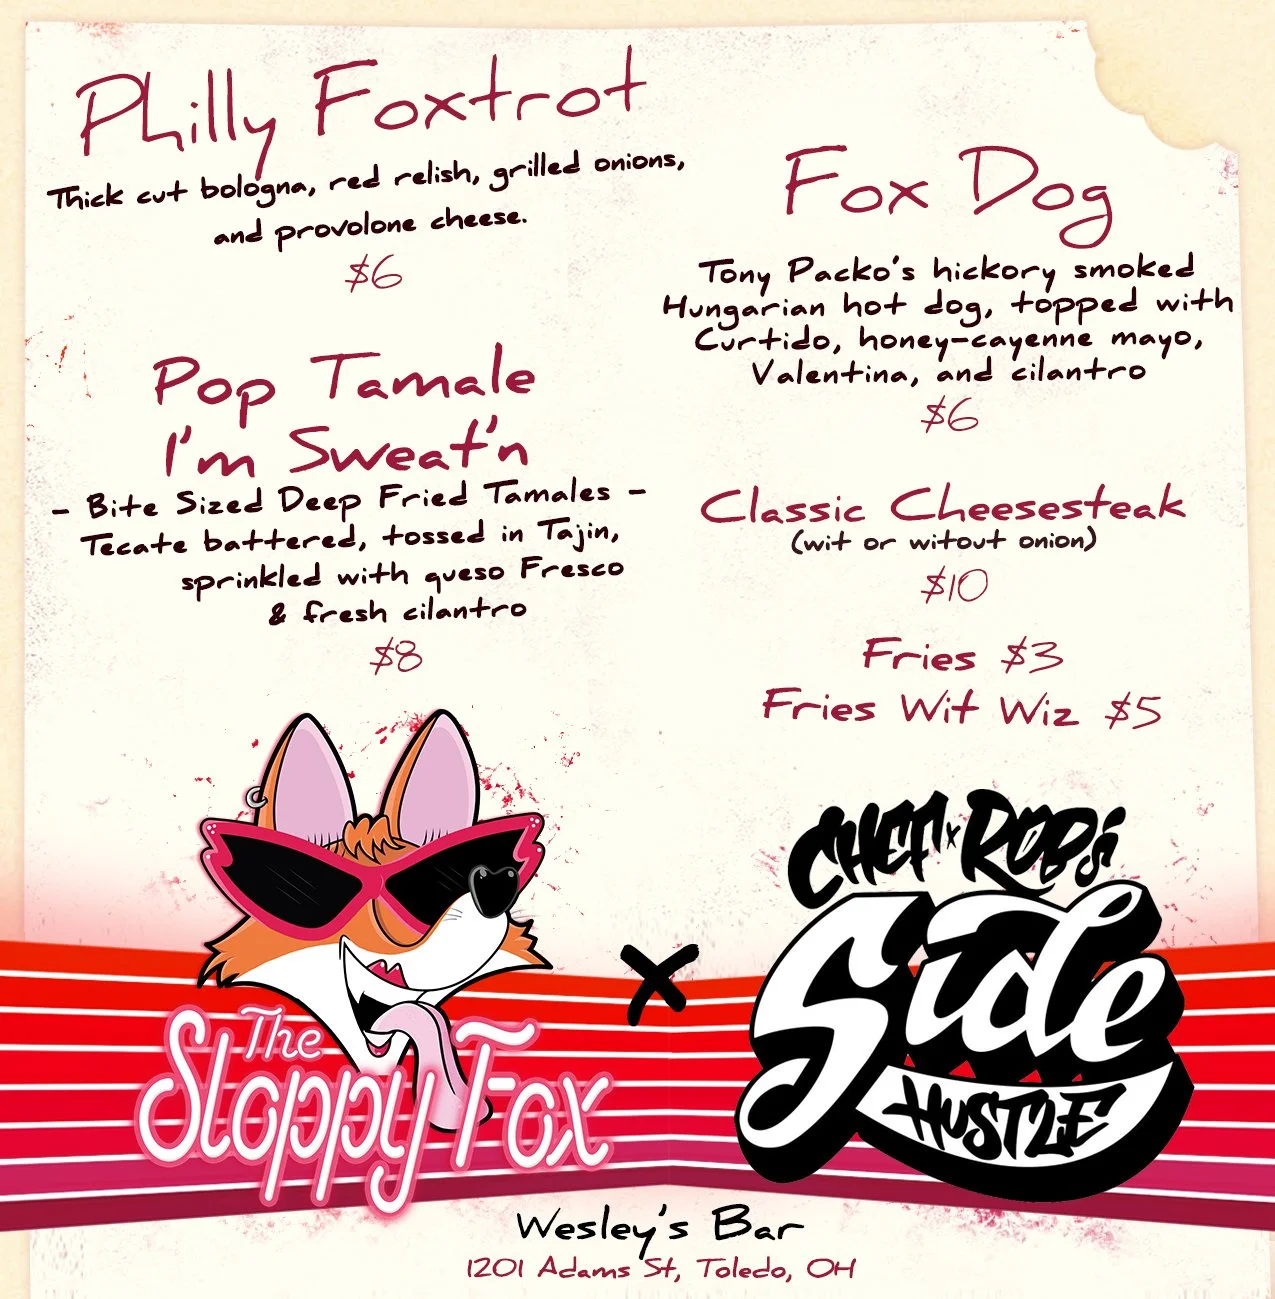 Philly Foxtrot
Thick cut bologna, red relish, grilled onions,
and provolone cheese.
$6
Pop Tamale
I'm Sweat'n
- Bite Sized Deep Fried Tamales -
Tecate battered, tossed in Tajin,
sprinkled with queso Fresco
& fresh cilantro
$8
Fox Dog
Tony Packo's hickory smoked
Hungarian hot dog, topped with
Curtido, honey-cayenne mayo,
Valentina, and cilantro
$6
Classic Cheesesteak
(wit or witout onion)
$10
Fries $3
Fries Wit Wiz $5
The
Sloppy Fox
x
Chef x Rob's
Side
Hustle
Wesley's Bar
1201 Adams St, Toledo, OH